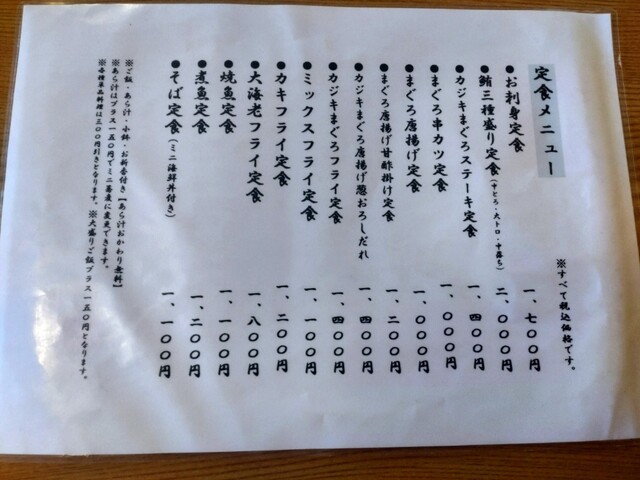 定食メニュー
※すべて税込価格です。
●お刺身定食 一、七〇〇円
●鮪三種盛り定食(中とろ・大トロ・中落ち) 二、〇〇〇円
●カジキまぐろステーキ定食 一、四〇〇円
●まぐろ串カツ定食 一、〇〇〇円
●まぐろ唐揚げ定食 一、〇〇〇円
●まぐろ唐揚げ甘酢掛け定食 一、二〇〇円
●カジキまぐろ唐揚げ葱おろしだれ 一、四〇〇円
●カジキまぐろフライ定食 一、四〇〇円
●ミックスフライ定食 一、一〇〇円
●カキフライ定食 一、二〇〇円
●大海老フライ定食 一、八〇〇円
●焼魚定食 一、一〇〇円
●煮魚定食 一、二〇〇円
●そば定食(ミニ海鮮丼付き) 一、一〇〇円
※ご飯・あら汁・小鉢・お新香付き【あら汁おかわり無料】
※あら汁はプラス一五〇円でミニ蕎麦に変更できます。 ※大盛りご飯プラス一五〇円となります。
※各種単品料理は三〇〇円引きとなります。